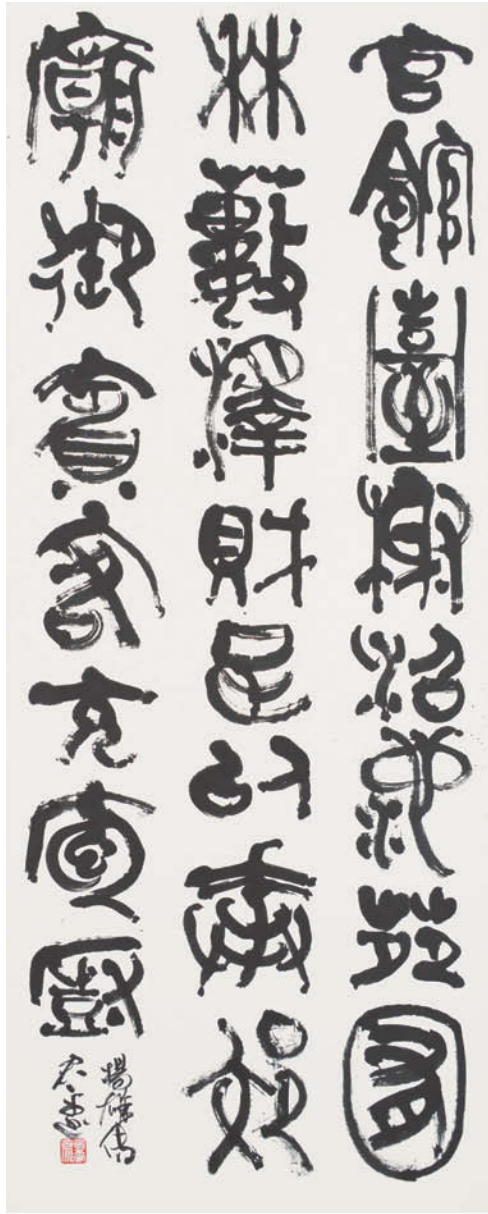 宮館臺榭沼池苑囿
林藪澤財足以奉郊
廟御賓客充庖廚
揚雄傳